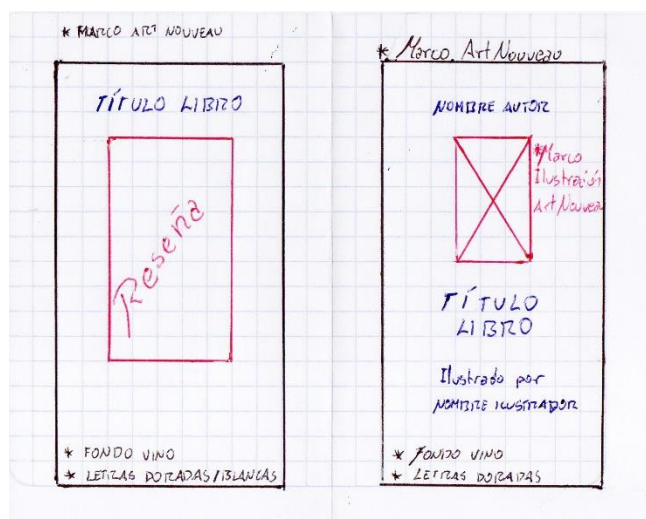 * MARCO ART NOUVEAU
TÍTULO LIBRO
Reseña
* FONDO VINO
* LETRAS DORADAS/BLANCAS
* Marco Art Nouveau
NOMBRE AUTOR
*Marco
Ilustración
Art Nouveau
TÍTULO
LIBRO
Ilustrado por
NOMBRE ILUSTRADOR
* FONDO VINO
* LETRAS DORADAS